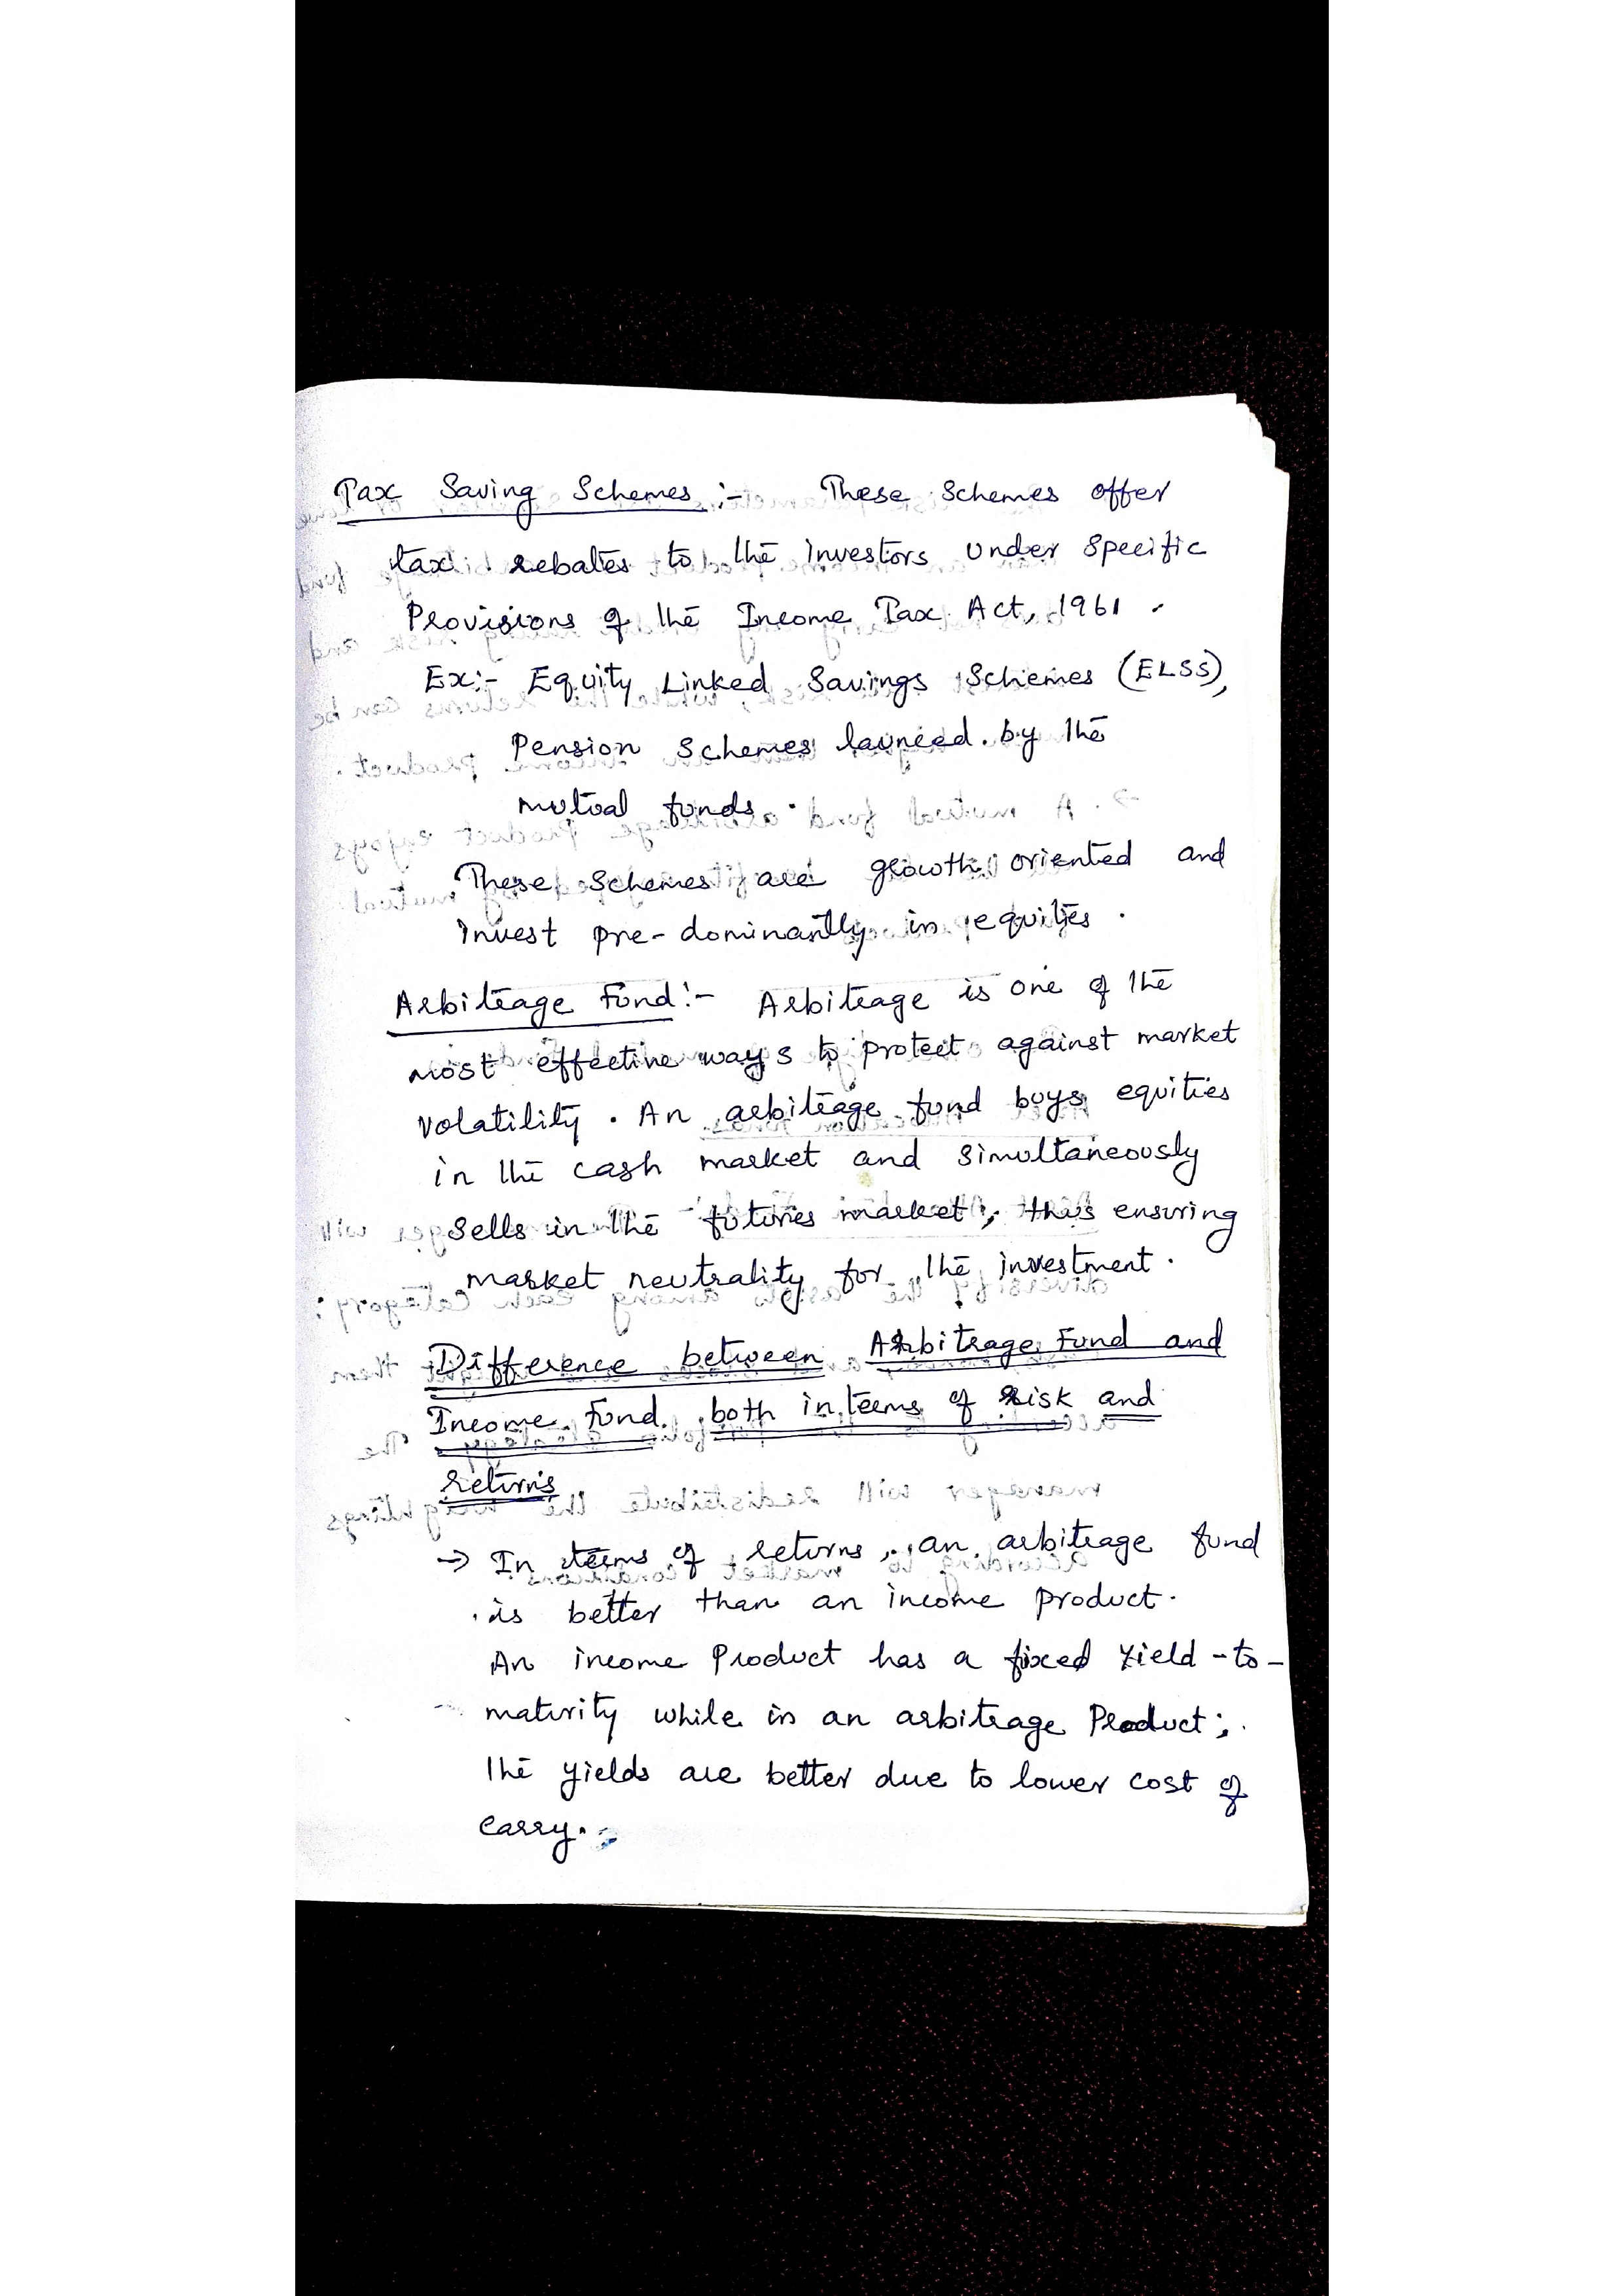 Tax Saving Schemes :- These Schemes offer
tax rebates to the investors under specific
Provisions of the Income Tax Act, 1961.
Ex:- Equity Linked Savings Schemes (ELSS),
Pension Schemes launced by the
mutual funds.
These Schemes are growth oriented and
invest pre-dominantly in equities.
Arbitrage Fund:- Arbitrage is one of the
most effective ways to protect against market
volatility. An arbitrage fund buys equities
in the cash market and simultaneously
sells in the futures market, thus ensuring
market neutrality for the investment.
Difference between Arbitrage Fund and
Income Fund both in terms of risk and
returns
→ In terms of returns, an arbitrage fund
is better than an income product.
An income Product has a fixed Yield-to-
maturity while in an arbitrage Product;
the yields are better due to lower cost of
carry.